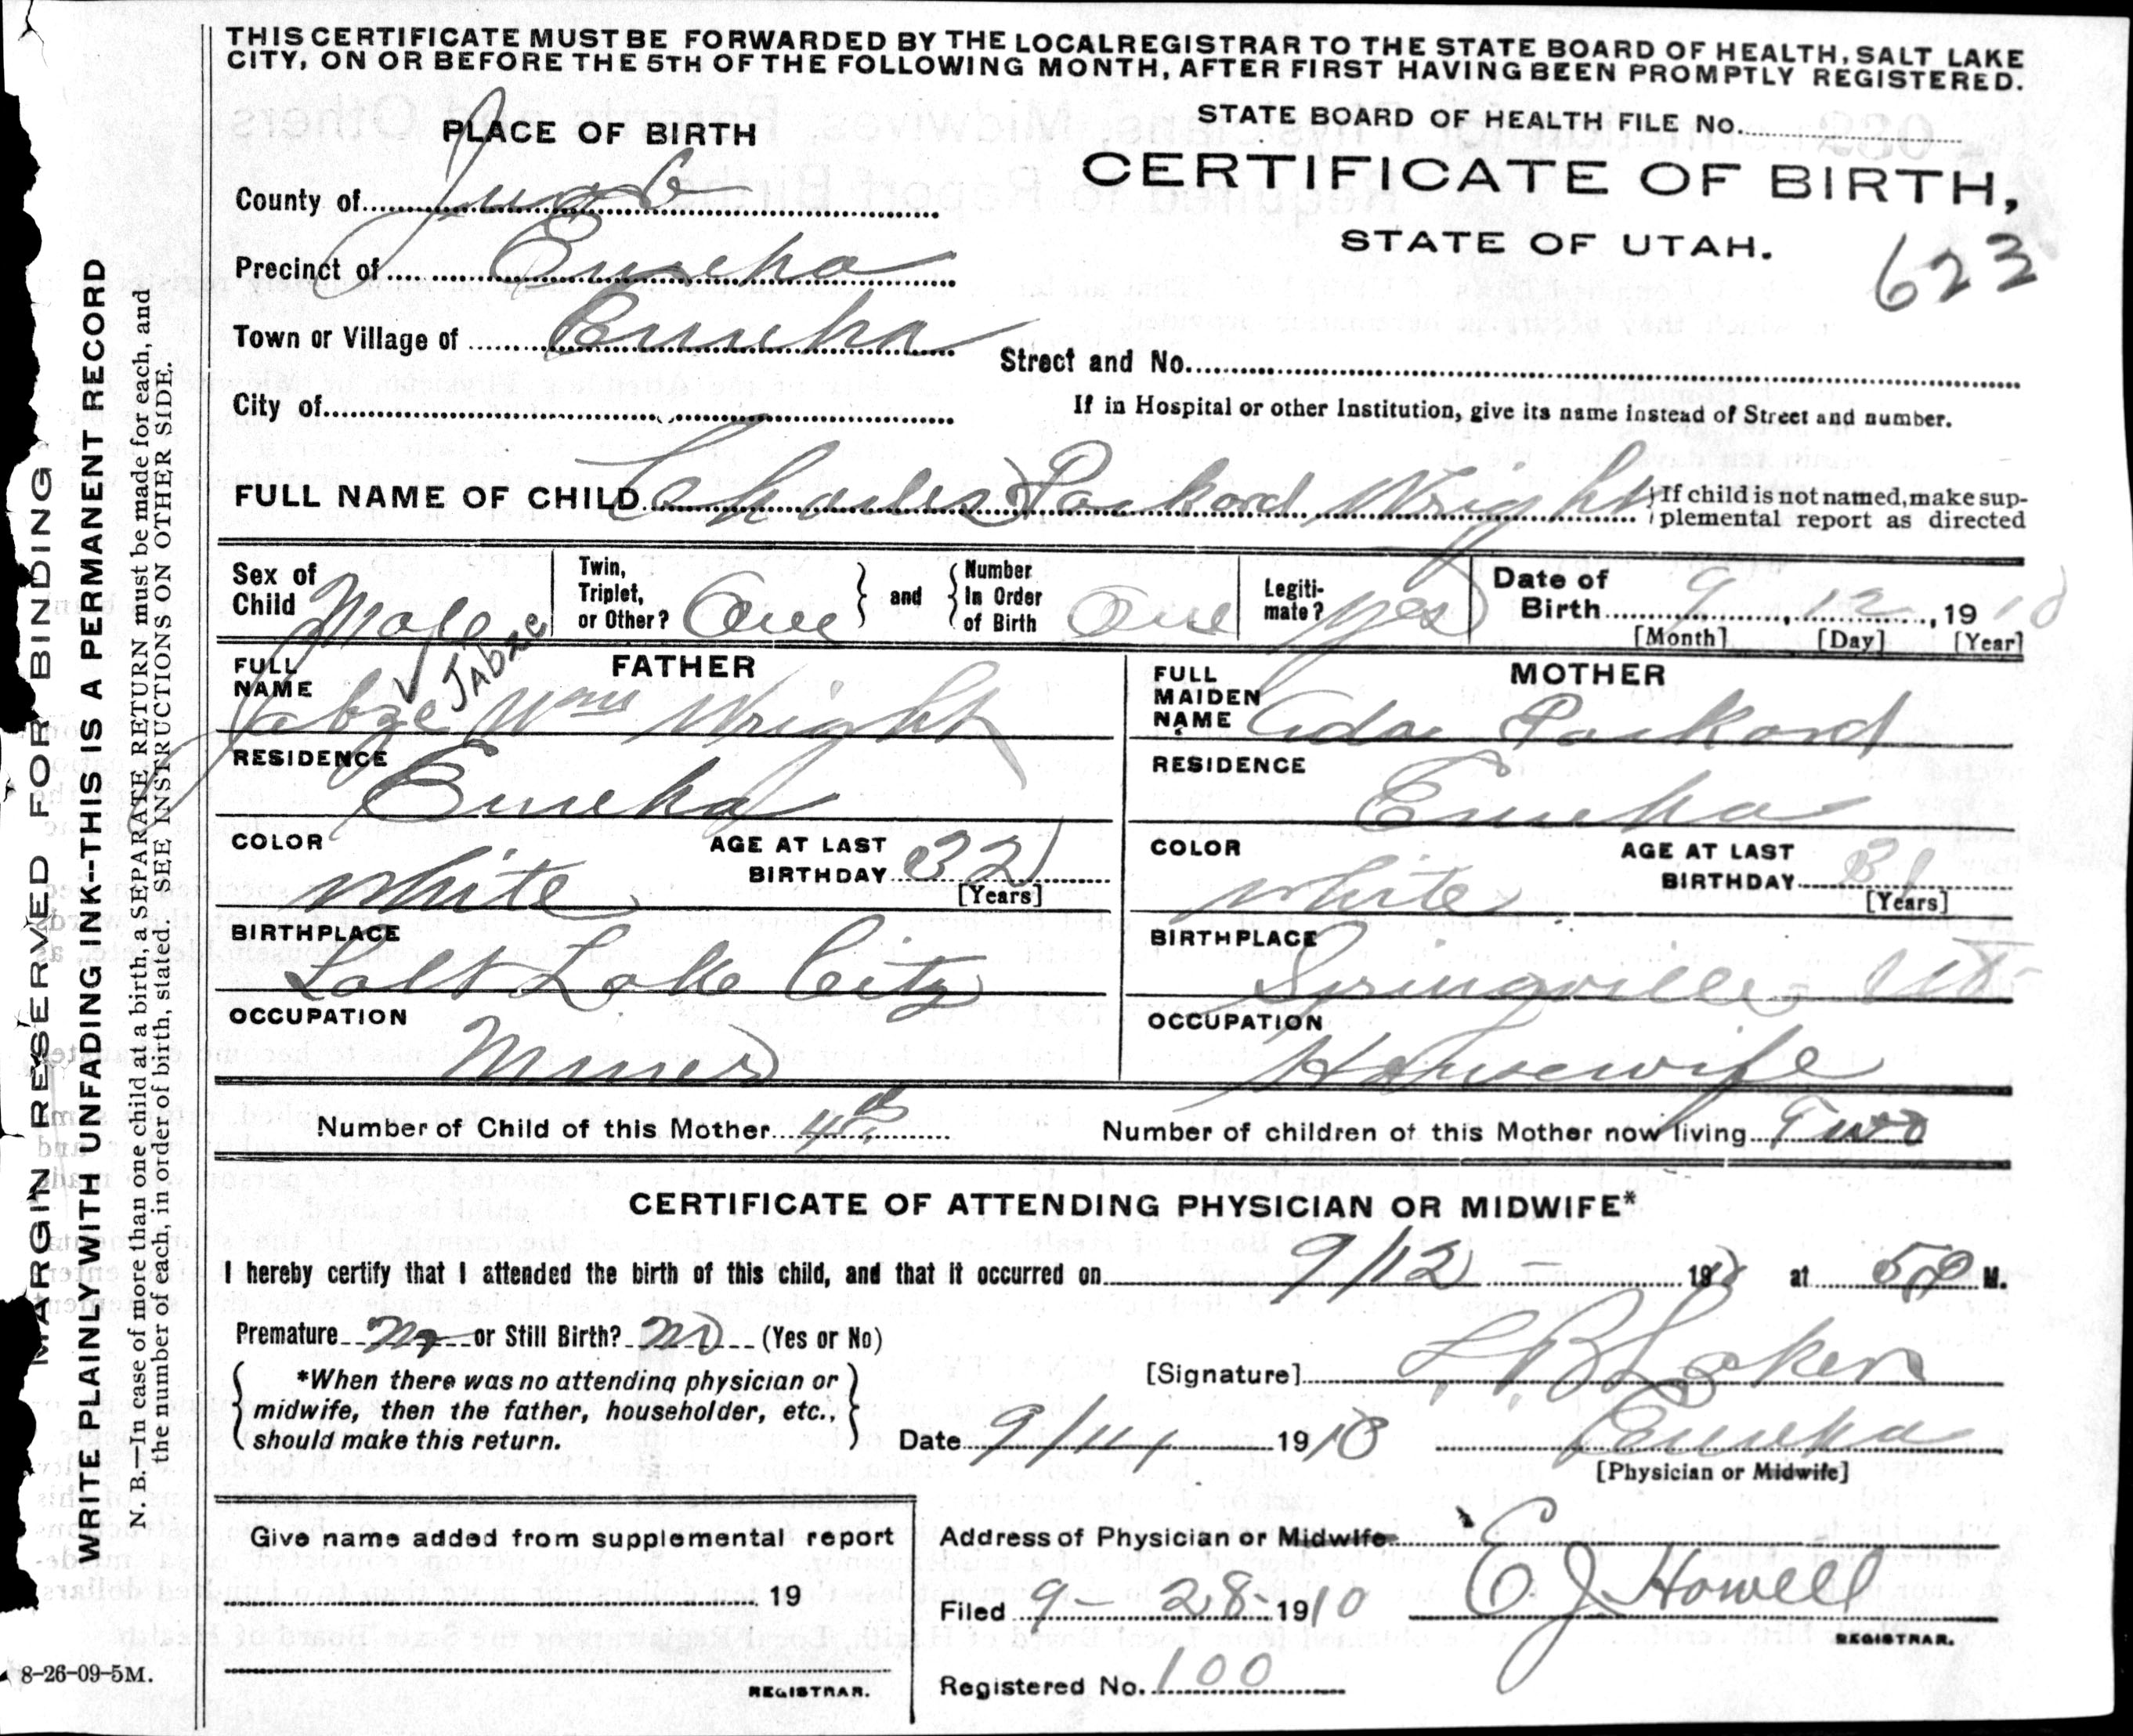 THIS CERTIFICATE MUST BE FORWARDED BY THE LOCAL REGISTRAR TO THE STATE BOARD OF HEALTH, SALT LAKE
CITY, ON OR BEFORE THE 5TH OF THE FOLLOWING MONTH, AFTER FIRST HAVING BEEN PROMPTLY REGISTERED.
PLACE OF BIRTH
STATE BOARD OF HEALTH FILE No.
CERTIFICATE OF BIRTH,
STATE OF UTAH.
623
County of Juab
Precinct of Eureka
Town or Village of Eureka
Street and No.
City of
If in Hospital or other Institution, give its name instead of Street and number.
FULL NAME OF CHILD Charles Packard Wright { If child is not named, make sup-
plemental report as directed
Sex of Child Male
Twin, Triplet, or Other? One } and { Number In Order of Birth One
Legiti-mate? yes
Date of Birth 9, 12, 1910
[Month] [Day] [Year]
FATHER
Jabze
FULL NAME Jabze Wm Wright
RESIDENCE Eureka
COLOR White AGE AT LAST BIRTHDAY 32 [Years]
BIRTHPLACE Salt Lake City
OCCUPATION Miner
MOTHER
FULL MAIDEN NAME Ada Packard
RESIDENCE Eureka
COLOR White AGE AT LAST BIRTHDAY 31 [Years]
BIRTHPLACE Springville, Ut
OCCUPATION Housewife
Number of Child of this Mother 4th
Number of children of this Mother now living Two
CERTIFICATE OF ATTENDING PHYSICIAN OR MIDWIFE*
I hereby certify that I attended the birth of this child, and that it occurred on 9/12 - 1910 at 5 P M.
Premature No or Still Birth? No (Yes or No)
*When there was no attending physician or
midwife, then the father, householder, etc.,
should make this return.
[Signature] Laker
Date 9/14 1910
Eureka
[Physician or Midwife]
Give name added from supplemental report
19
REGISTRAR.
Address of Physician or Midwife
Filed 9- 28- 1910 E J Howell
REGISTRAR.
Registered No. 100
MARGIN RESERVED FOR BINDING
WRITE PLAINLY WITH UNFADING INK--THIS IS A PERMANENT RECORD
N. B.—In case of more than one child at a birth, a SEPARATE RETURN must be made for each, and
the number of each, in order of birth, stated. SEE INSTRUCTIONS ON OTHER SIDE.
8-26-09-5M.